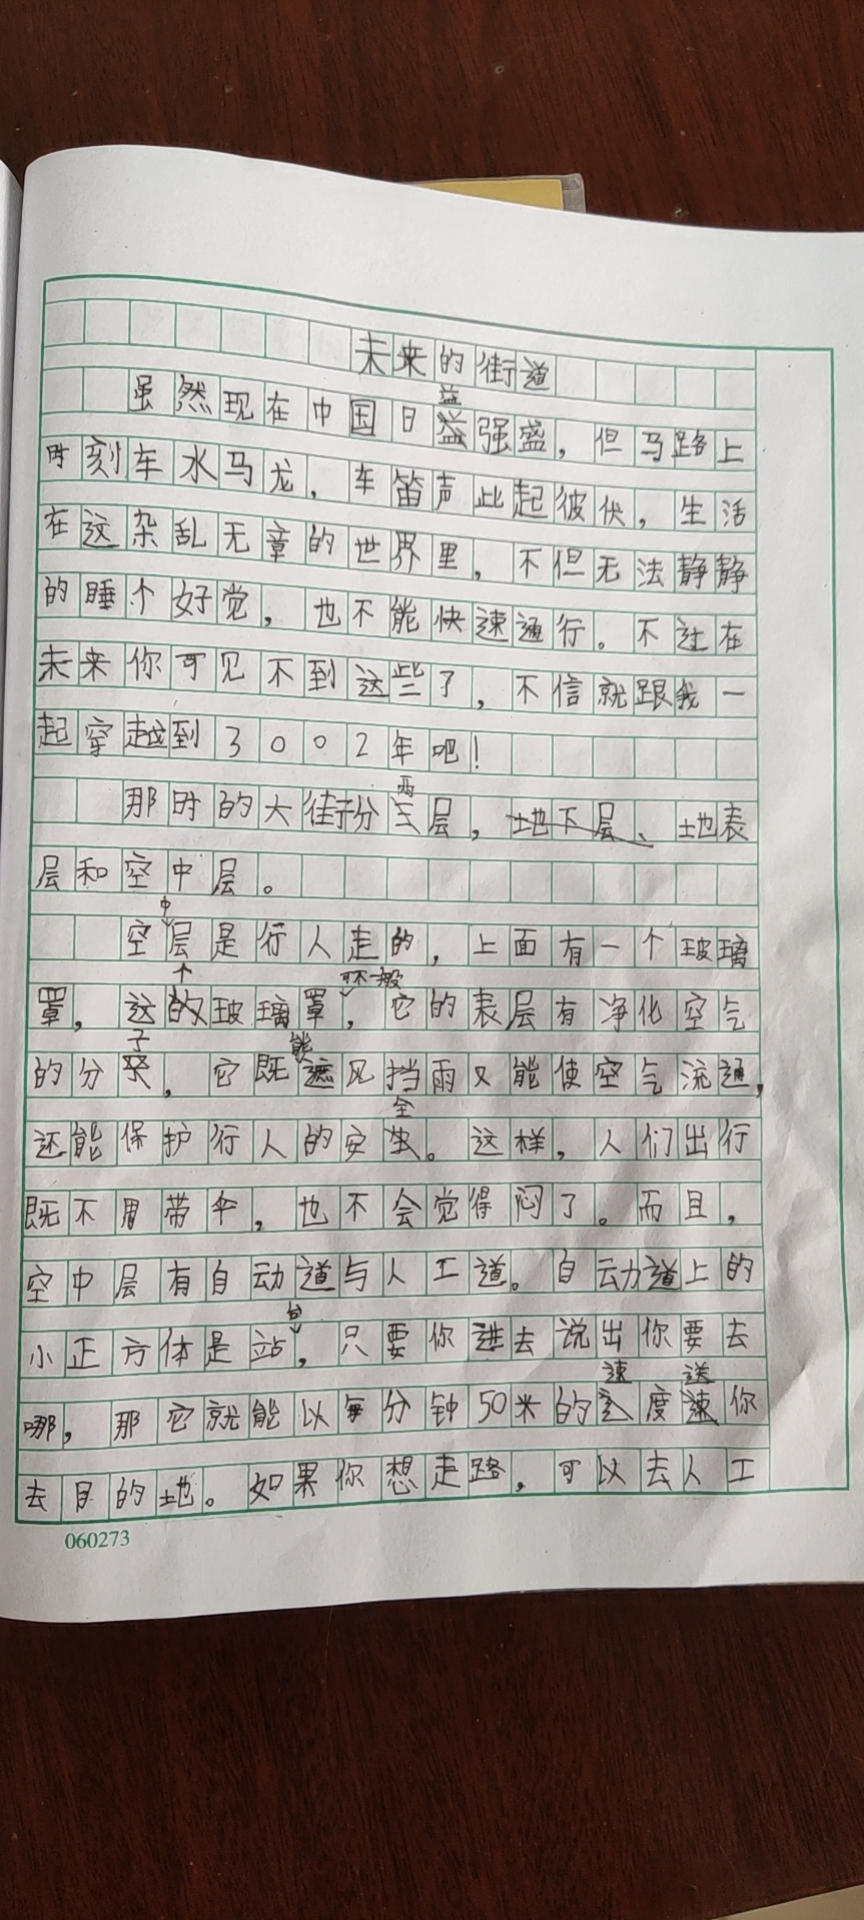 未来的街道
虽然现在中国日益强盛，但马路上
时刻车水马龙，车笛声此起彼伏，生活
在这杂乱无章的世界里，不但无法静静
的睡个好觉，也不能快速通行。不过在
未来你可见不到这些了，不信就跟我一
起穿越到3002年吧！
那时的大街分两层，地表
层和空中层。
空中层是行人走的，上面有一个玻璃
罩，这个玻璃罩不一般，它的表层有净化空气
的分子，它既能遮风挡雨又能使空气流通，
还能保护行人的安全。这样，人们出行
既不用带伞，也不会觉得闷了。而且，
空中层有自动道与人工道。自动道上的
小正方体是站台，只要你进去说出你要去
哪，那它就能以每分钟50米的速度送你
去目的地。如果你想走路，可以去人工
060273